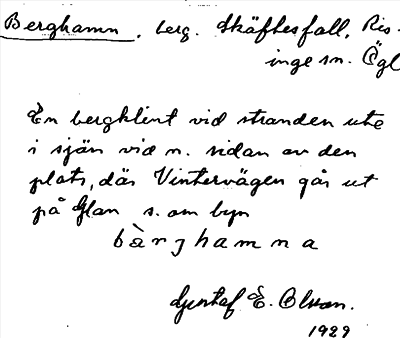 Berghamn, berg. Skäftesfall, Ris-
inge sn. Ögl
En bergklint vid stranden ute
i sjön vid n. sidan av den
plats, där Vintervägen går ut
på Glan s. om byn
bàrjhamna
Gustaf E. Olson.
1929